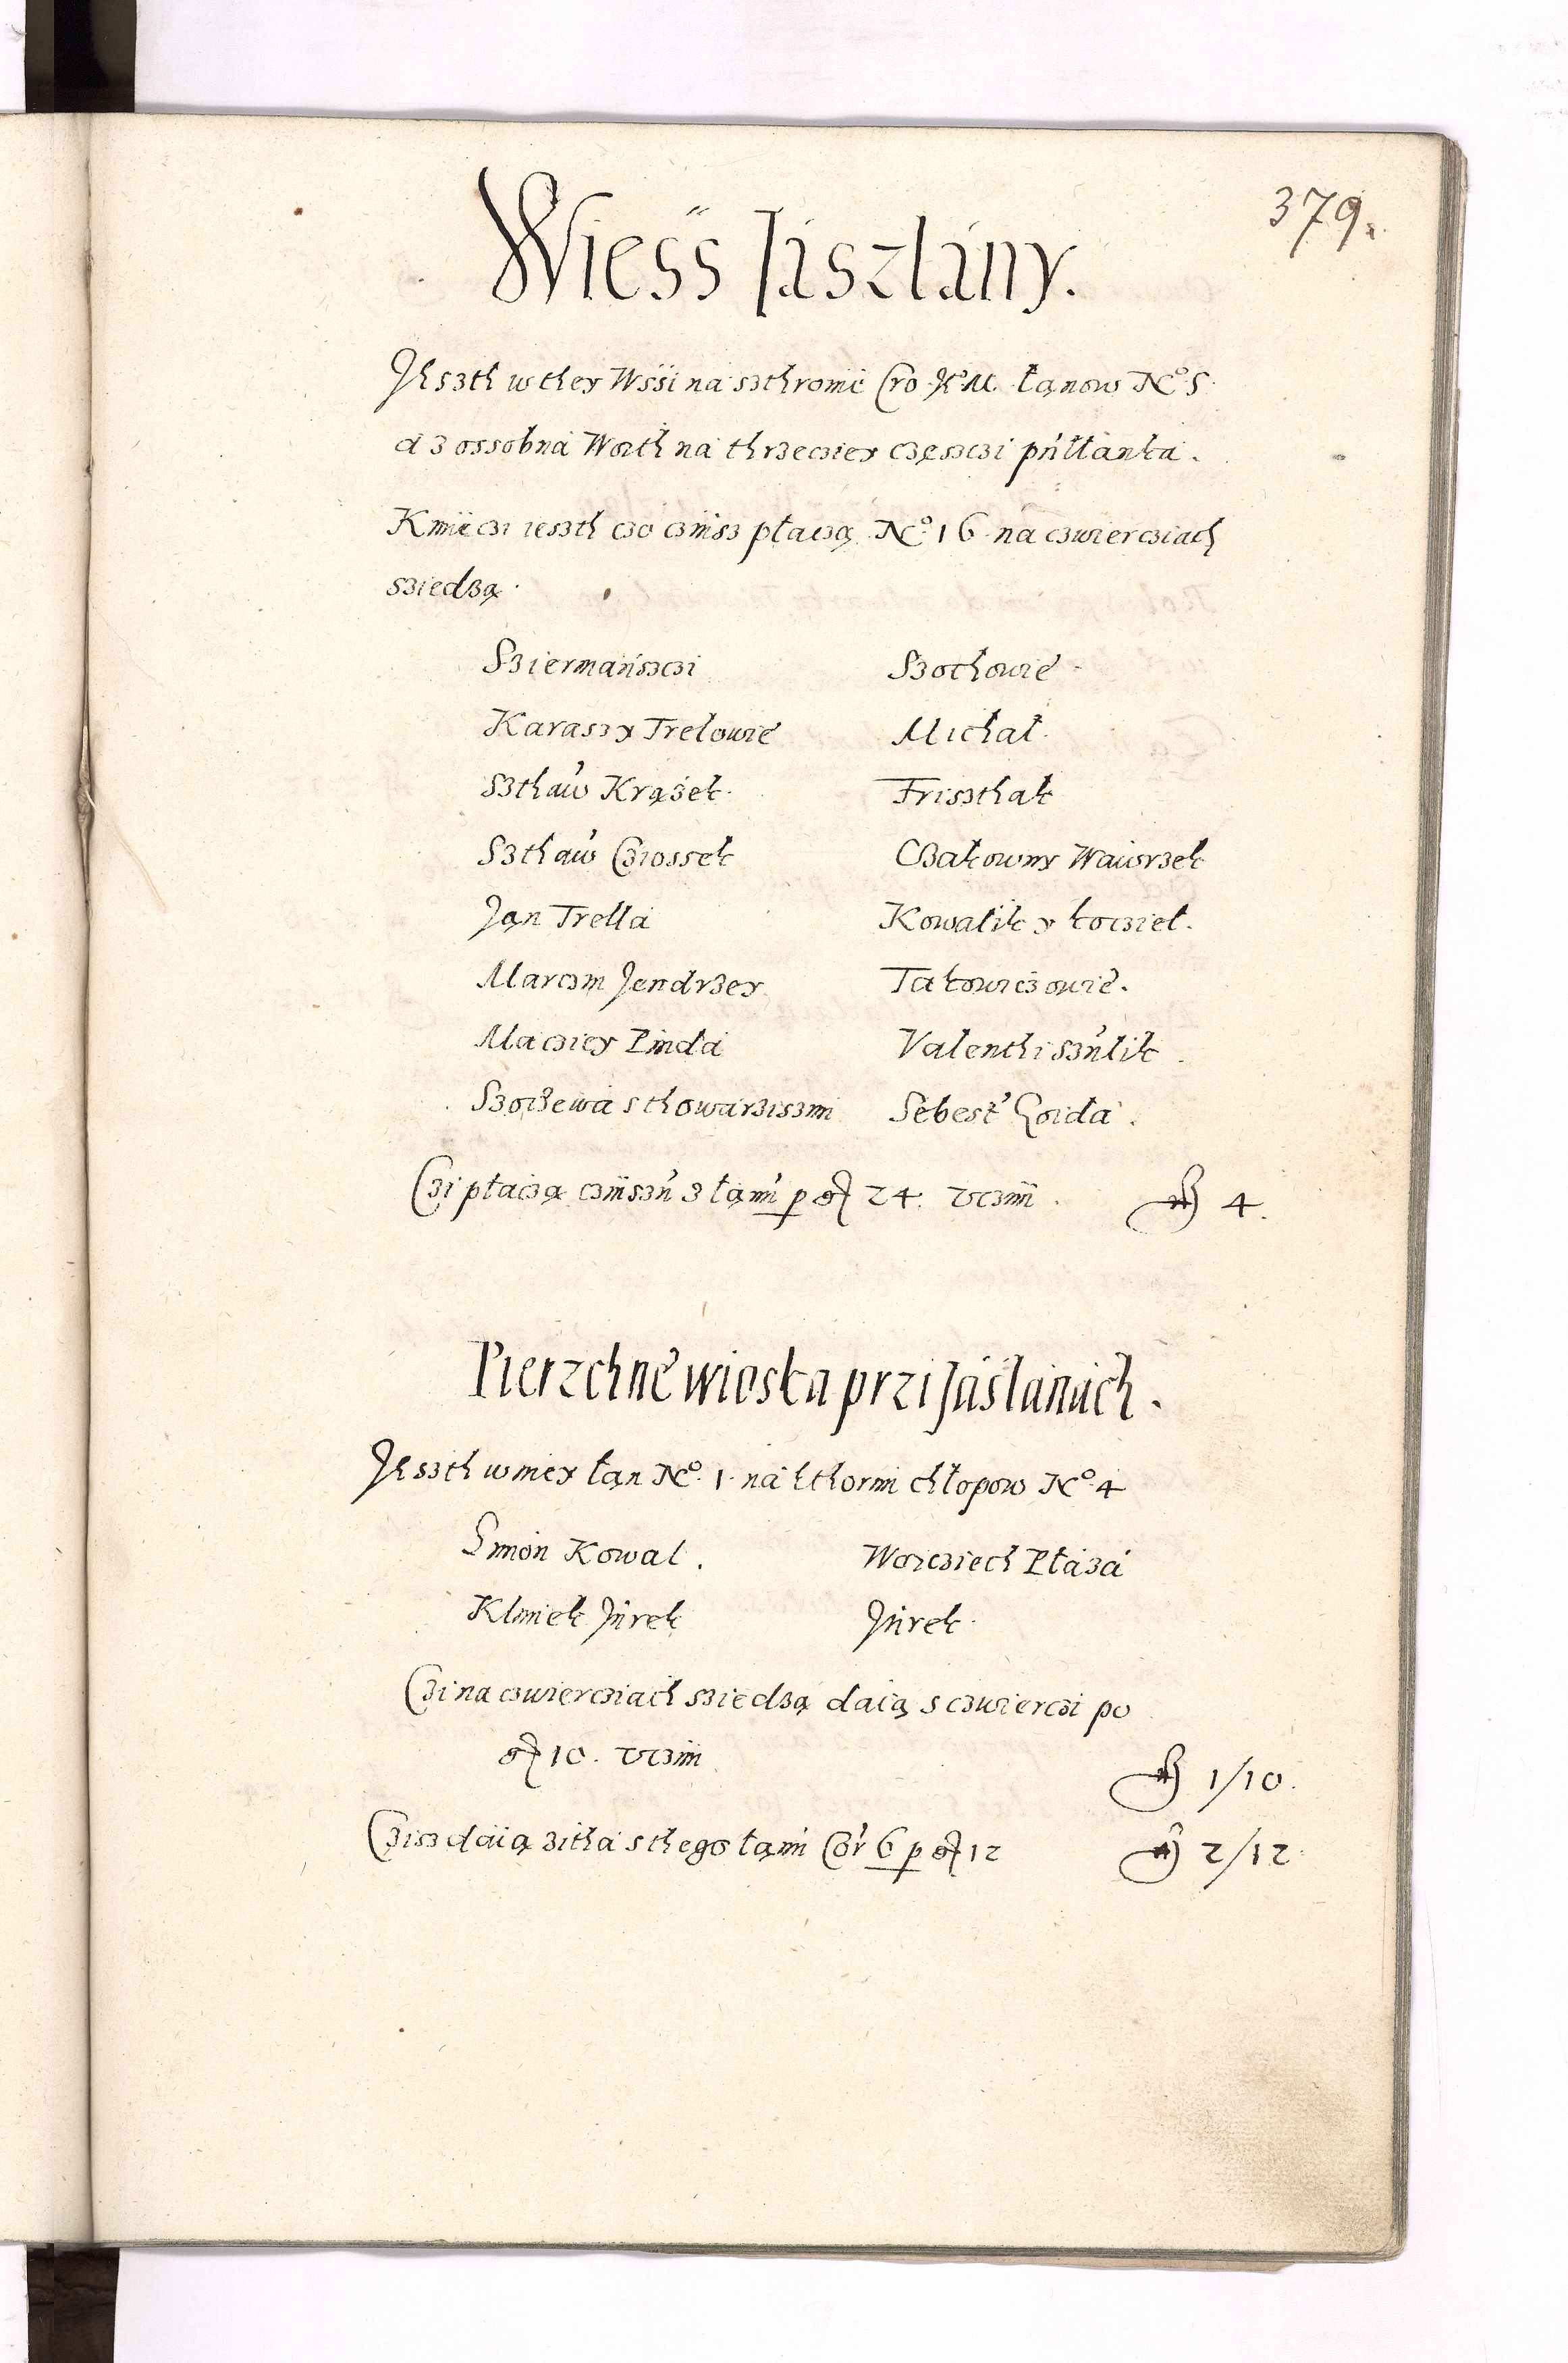 379.
Wiesś Jaszlány.
Jeszth w they Wssi na szthronie Cro Je° M. łanow N° 5
a z ossobná Woith na thrzecziey częsczi pułłanka.
Kmiieczi ieszth czo czinsz płaczą N° 16 na czwiercziach
sziedzą.
Sziermańsczi Szothowie
Karasz y Trelowie Michał.
Szthaw Krązek Friszthak
Szthaw Cziossek Czakowny Wawrzek
Jan Trella Kowalik y koczieł.
Marczin Jendrzey Takowiczowie.
Macziey Pinda Valenthi Szulik
Szoiżewa s thowarziszmi Sebest Goida.
Czi płaczą czinszu z łanu p 24. vczini 4.
Pierzchne wioska przi Jaślanách.
Jeszth w niey łan N° 1 na kthorim chłopow N° 4
Simon Kowal. Woicziech Ptaza
Klimek Jurek Jurek
Czi na czwiercziach sziedzą daią s czwierczi po
10. vczini 1/10.
Czisz daią zitha s thego łanu Cor 6 p 12 2/12